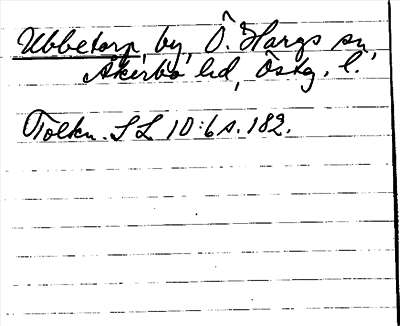 Ubbetorp, by, Ö. Hargs sn,
Åkerbo hd, Östg. l.
Tolkn. SL 10:6 s. 182.